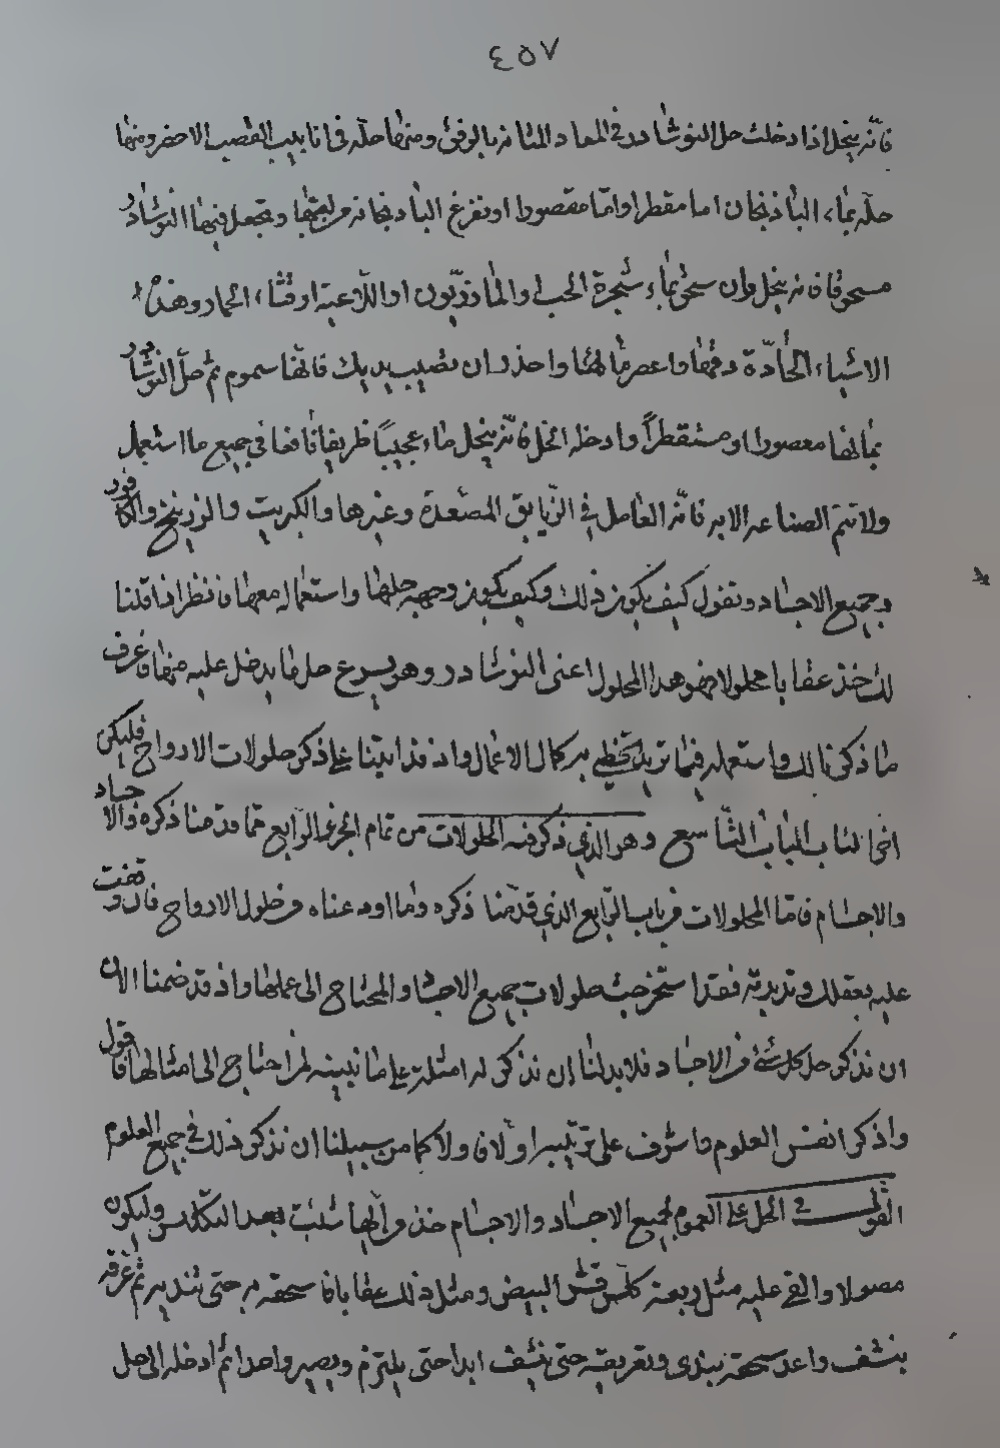 ٤٥٧
فانه ينحل اذا دخلت حل النوشادر في المعا د المثانه بالوفق ومنها حله في انابيب القصب الاخضر ومنها
حله بماء الباذنجان اما مقطرا واما مقصورا او تفرغ الباذنجانه من لحمها وتجعل فيها النوشادر
مسحوقا فانه ينحل وان سحق بماء شجرة الحب والمازريون او اللاعية او قثاء الحمار وهذه
الاشياء الحادة دقها واعصر مائها واحذر ان تصيب يديك فانها سموم ثم حل النوشادر
بمائها معصورا او مستقطرا وادخله الحل فانه ينحل ماء عجيبا ظريفا نافعا في جميع ما استعمل
ولا تتم الصناعه الا به فانه الفاصل في الزيابق المصعدة وغيرها والكبريت والزرنيخ والكافور
وجميع الاجساد ونقول كيف يكون ذلك وكيف يكون وجهه حلها واستعماله معها فانظر اذا قلنا
لك خذ عقابا محلولا فهو هذا المحلول اعنى النوشادر وهو يسرع حل ما يدخل عليه منها فاعرف
ما ذكرنا لك واستعمله فيما تريد تحظي به كمال الاعمال واذ قد اتينا على ذكر حلولات الارواح فليكن
اخر الباب التاسع وهو الذي ذكر فيه الحلولات من تمام الجزء الرابع مما قدمنا ذكره والاجساد
والاجسام فاما المحلولات في باب الرابع الذي قدمنا ذكره وما اودعناه من حلول الارواح فان وقفت
عليه بعقلك وتدبرته فقد استخرجت حلولات جميع الاجساد والمحتاج الى عملها واذ قد ضمنا الان
ان نذكر حل كل شئ من الاجساد فلا بد لنا ان نذكر له امثلة على ما نبينه لمن احتاج الى امثالها فاقول
واذكر انفس العلوم فاشرف على ترتيبه اولا فاولا كما من سبيلنا ان نذكر ذلك في جميع العلوم
القول في الحل على العموم لجميع الاجساد والاجسام خذ من ايها شئت بعد التكليس وليكون
مصولا والق عليه مثل ربعه كلس قشر البيض ومثل ذلك عقابا فاسحقه به حتى تنديه ثم غرقه
ينشف واعد سحقه بندى وتغريقه حتى ينشف ابدا حتى يلتزم ويصير واحدا ثم ادخله الى حل